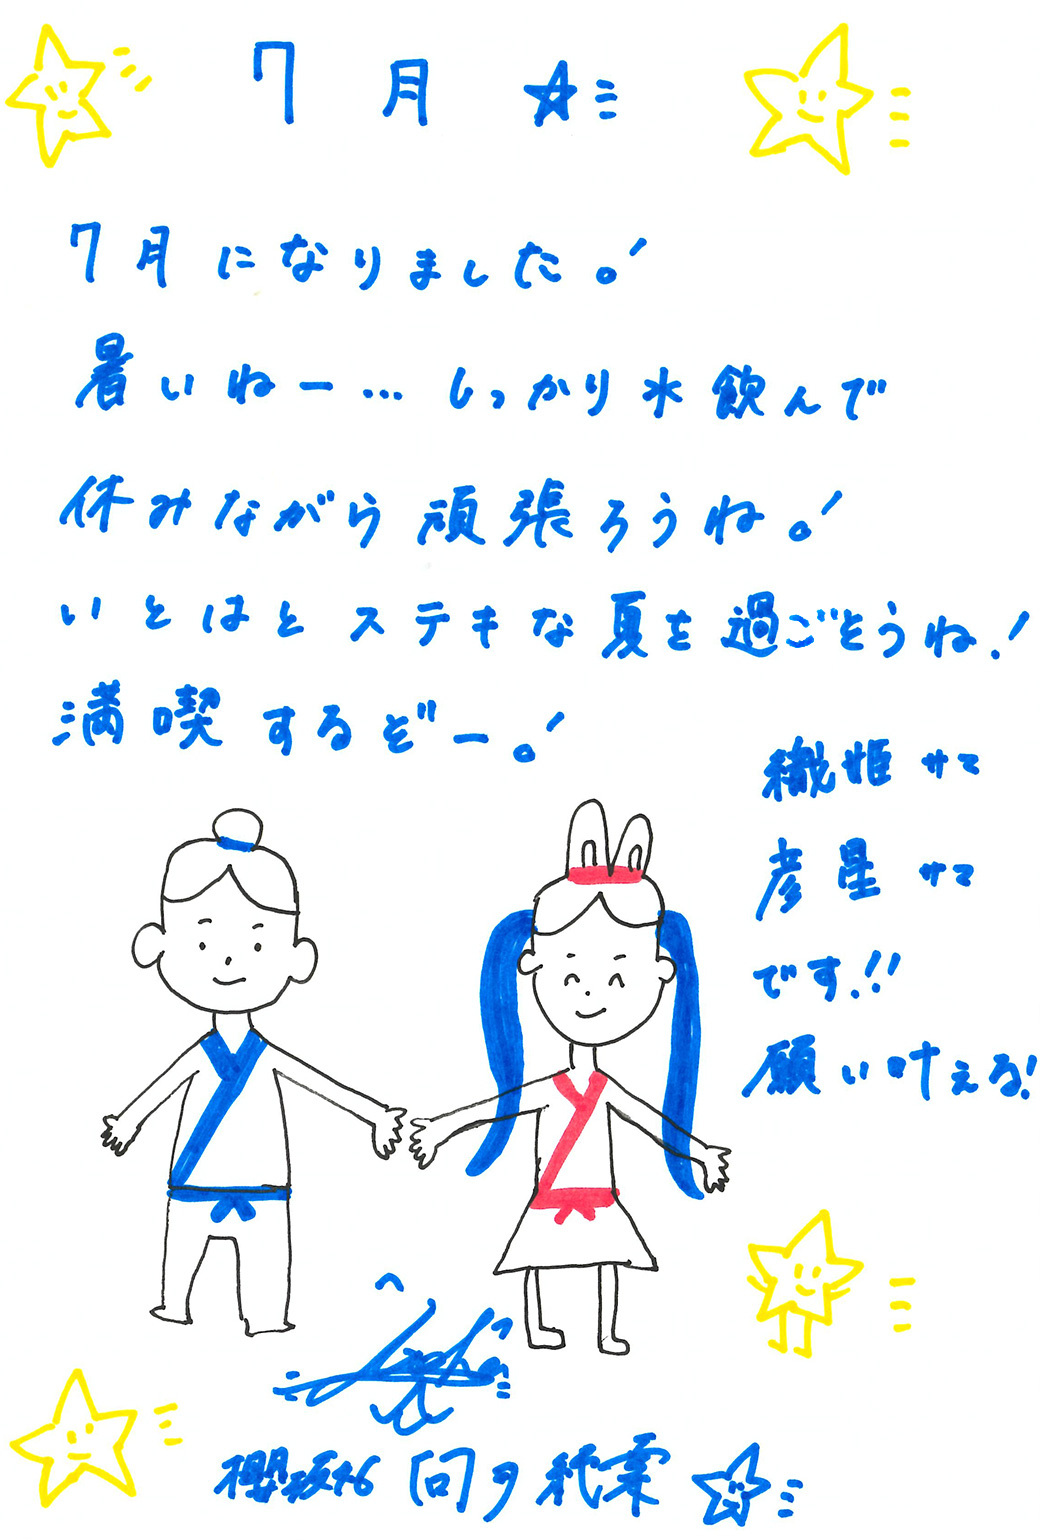 7月☆
7月になりました。!
暑いねー…しっかり水飲んで
休みながら頑張ろうね。!
いとはとステキな夏を過ごそうね!
満喫するぞー。!
織姫サマ
彦星サマ
です!!
願い叶える!
櫻坂46 向井純葉☆